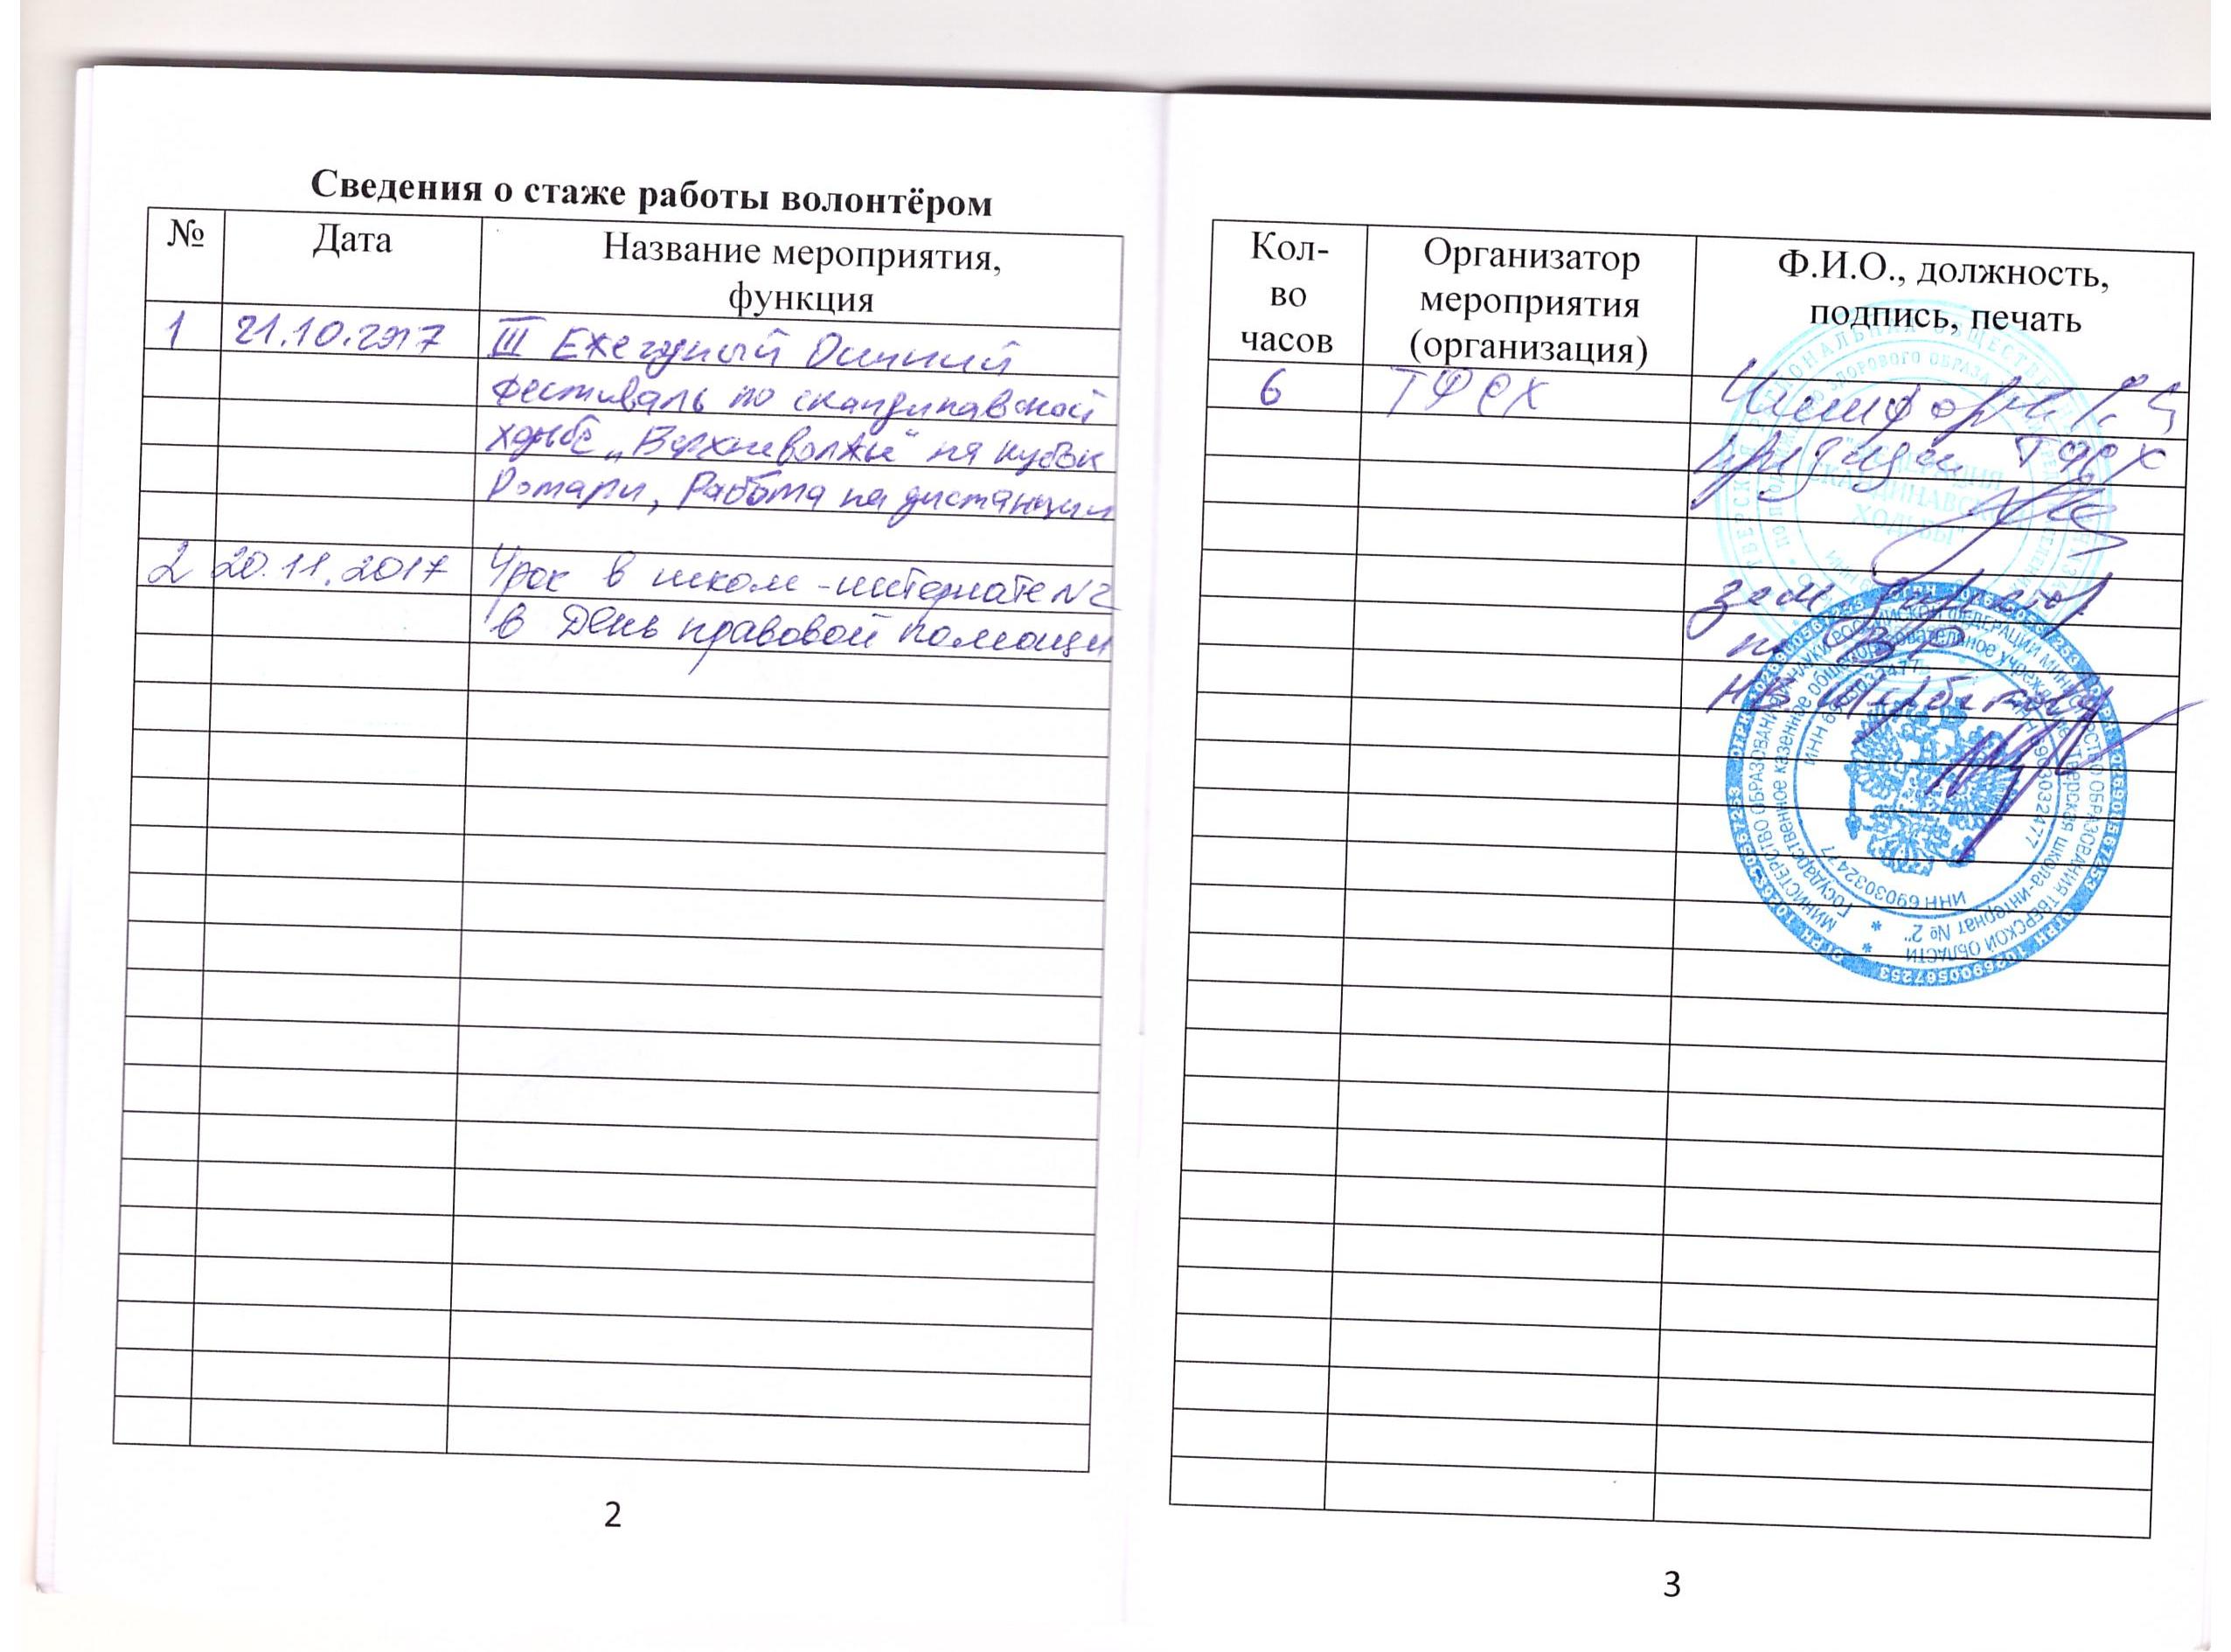 Сведения о стаже работы волонтёром
№ Дата Название мероприятия,
функция
1 21.10.2017 III Ежегодный Осенний
фестиваль по скандинавской
ходьбе „Верхневолжье“ на кубок
Ротари, Работа на дистанции
2 20.11.2017 Урок в школе-интернате №2
в День правовой помощи
2
Кол-
во
часов
Организатор
мероприятия
(организация)
Ф.И.О., должность,
подпись, печать
6 ТФСХ
президент ТФСХ
СКАНДИНАВСКОЙ
ХОДЬБЫ
зам директора
по ВР
Н.В.
МИНИСТЕРСТВО ОБРАЗОВАНИЯ И НАУКИ РОССИЙСКОЙ ФЕДЕРАЦИИ МИНИСТЕРСТВО ОБРАЗОВАНИЯ ТВЕРСКОЙ ОБЛАСТИ
Государственное казенное общеобразовательное учреждение "Тверская школа-интернат № 2"
ИНН 6903032477
ОГРН 1026900567253
3